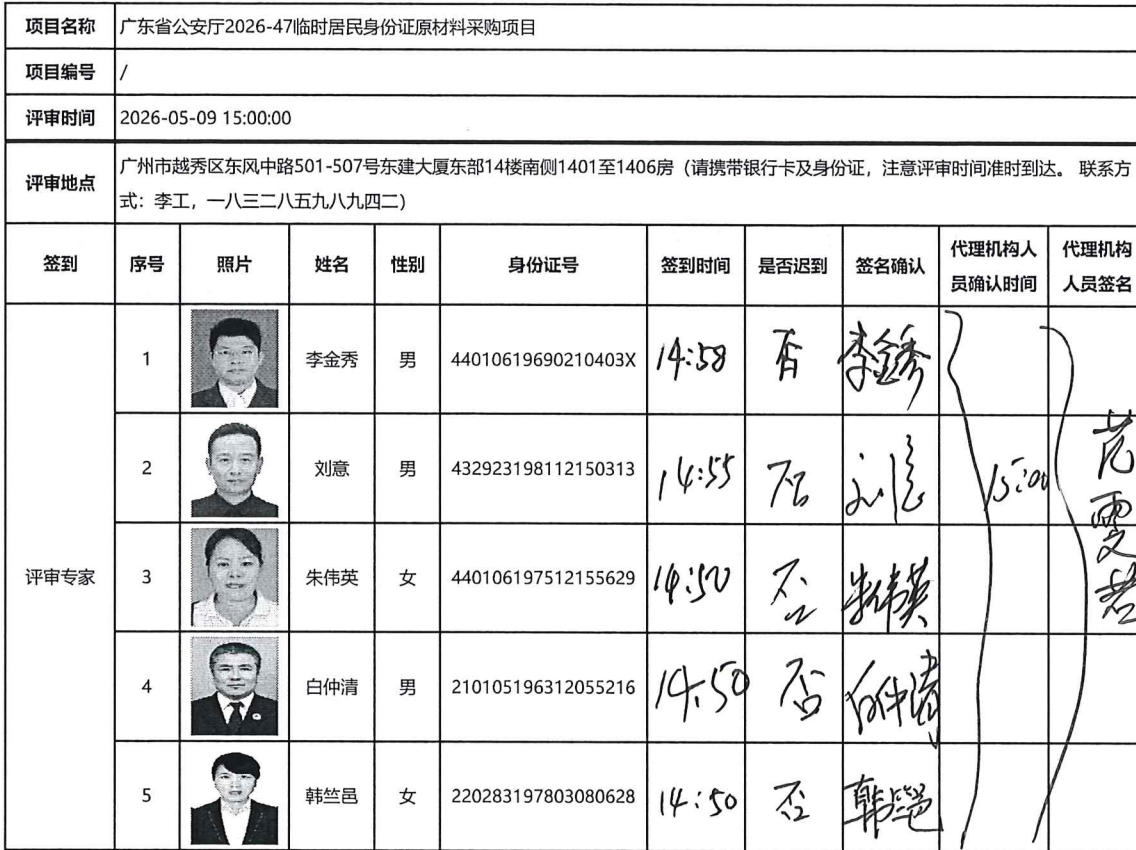 项目名称 广东省公安厅2026-47临时居民身份证原材料采购项目
项目编号 /
评审时间 2026-05-09 15:00:00
评审地点 广州市越秀区东风中路501-507号东建大厦东部14楼南侧1401至1406房（请携带银行卡及身份证，注意评审时间准时到达。 联系方
式：李工，一八三二八五九八九四二）
签到 序号 照片 姓名 性别 身份证号 签到时间 是否迟到 签名确认 代理机构人 代理机构
员确认时间 人员签名
1 李金秀 男 44010619690210403X 14:58 否 李金秀
2 刘意 男 432923198112150313 14:55 否 刘意 15:00
评审专家 3 朱伟英 女 440106197512155629 14:50 否 朱伟英
4 白仲清 男 210105196312055216 14:50 否 白仲清
5 韩竺邑 女 220283197803080628 14:50 否 韩竺邑